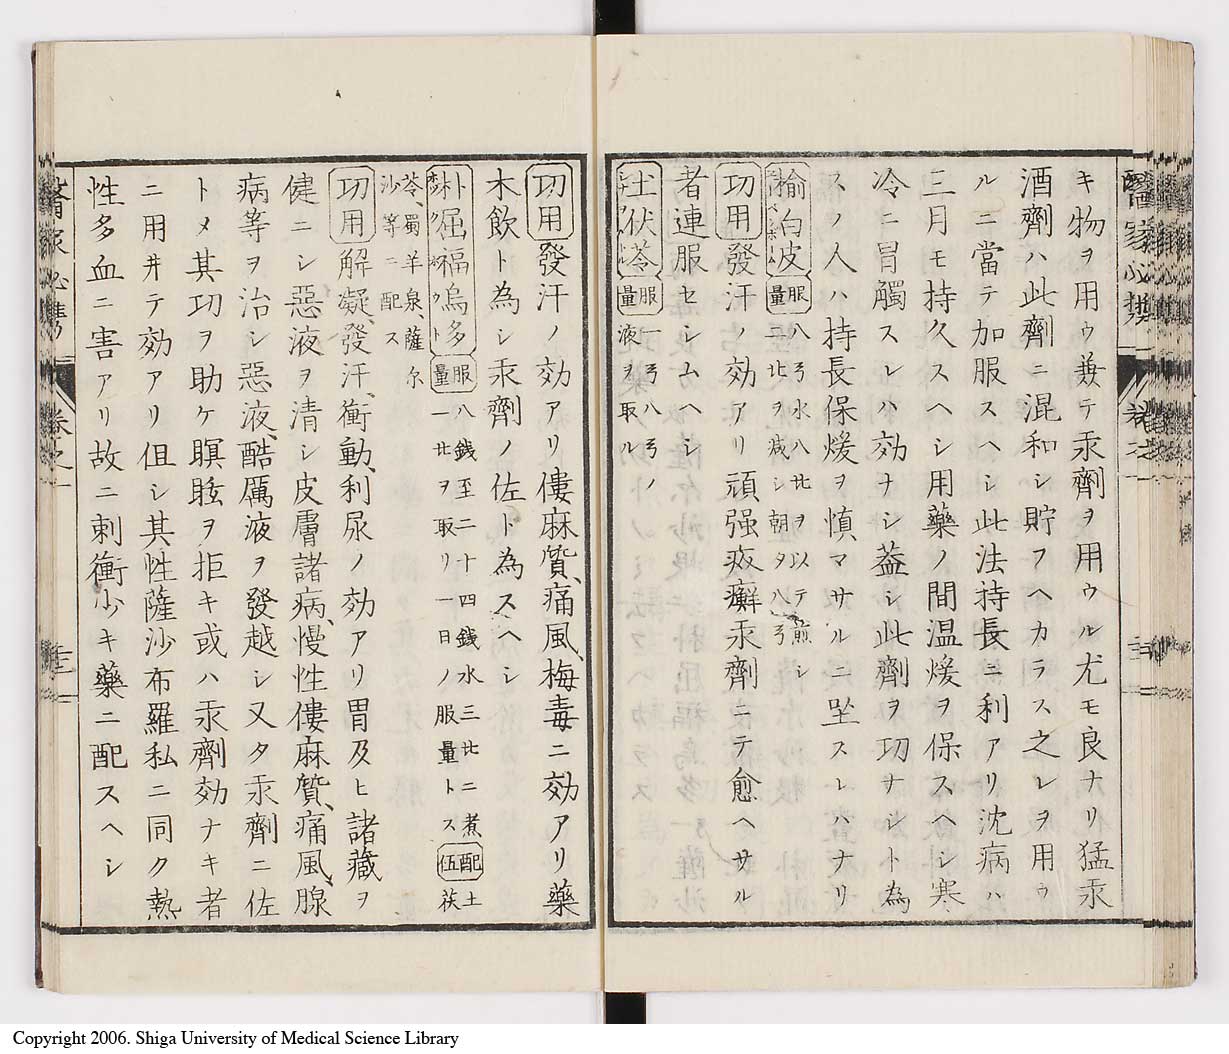 キ物ヲ用ウ兼テ汞劑ヲ用ウル尤モ良ナリ猛汞
酒劑ハ此劑ニ混和シ貯フヘカラス之レヲ用ウ
ルニ當テ加服スヘシ此法持長ニ利アリ沈病ハ
三月モ持久スヘシ用藥ノ間温煖ヲ保スヘシ寒
冷ニ冒觸スレハ効ナシ葢シ此劑ヲ功ナシト為
スノ人ハ持長保煖ヲ慎マサルニ坐スレハナリ
榆白皮 服量 八弓水八比ヲ以テ煎シ
一比ヲ減シ朝夕八弓
功用 發汗ノ効アリ頑强疥癬汞劑ニテ愈ヘサル
者連服セシムヘシ
土伏苓 服量 一弓八弓ノ
液ヲ取ル
功用 發汗ノ効アリ僂麻質、痛風、梅毒ニ効アリ藥
木飲ト為シ汞劑ノ佐ト為スヘシ
朴屈福烏多 服量 八錢至二十四錢水三比ニ煮
一比ヲ取リ一日ノ服量トス 配伍 土茯
苓、蜀羊泉、薩尔
沙等ニ配ス
功用 解凝、發汗、衝動、利尿ノ効アリ胃及ヒ諸藏ヲ
健ニシ惡液ヲ清シ皮膚諸病、慢性僂麻質、痛風、腺
病等ヲ治シ惡液、酷厲液ヲ發越シ又タ汞劑ニ佐
トメ其功ヲ助ケ瞑眩ヲ拒キ或ハ汞劑効ナキ者
ニ用井テ効アリ但シ其性薩沙布羅私ニ同ク熱
性多血ニ害アリ故ニ刺衝少キ藥ニ配スヘシ
Copyright 2006. Shiga University of Medical Science Library